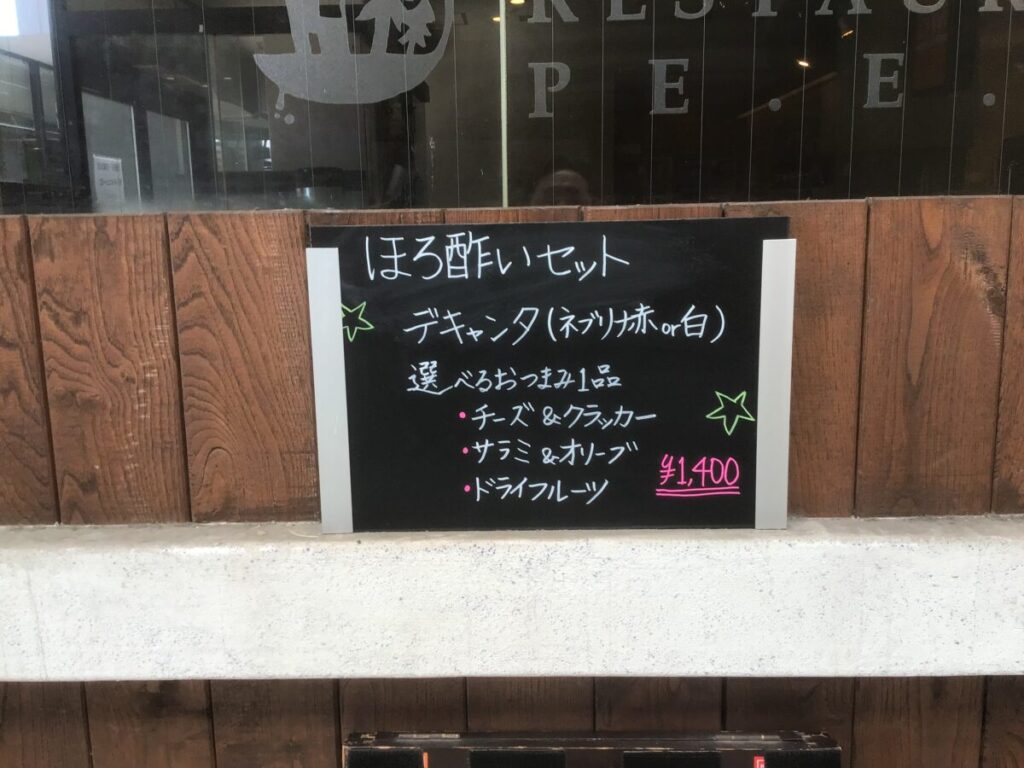 RESTAUR
P E . E .
ほろ酢いセット
デキャンタ(ネブリナ赤or白)
選べるおつまみ1品
・チーズ&クラッカー
・サラミ&オリーブ
・ドライフルーツ
¥1,400